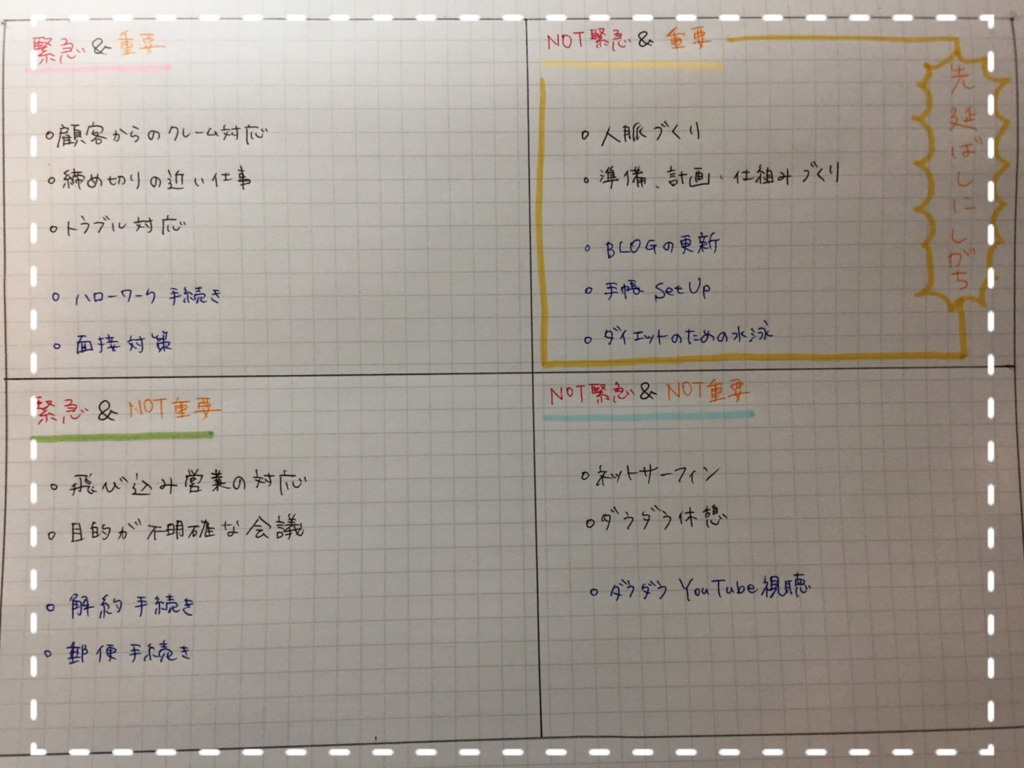 緊急&重要
○顧客からのクレーム対応
○締め切りの近い仕事
○トラブル対応
○ハローワーク手続き
○面接対策
NOT緊急&重要
先延ばしにしがち
○人脈づくり
○準備、計画・仕組みづくり
○BLOGの更新
○手帳SetUp
○ダイエットのための水泳
緊急&NOT重要
○飛び込み営業の対応
○目的が不明確な会議
○解約手続き
○郵便手続き
NOT緊急&NOT重要
○ネットサーフィン
○ダラダラ休憩
○ダラダラYouTube視聴